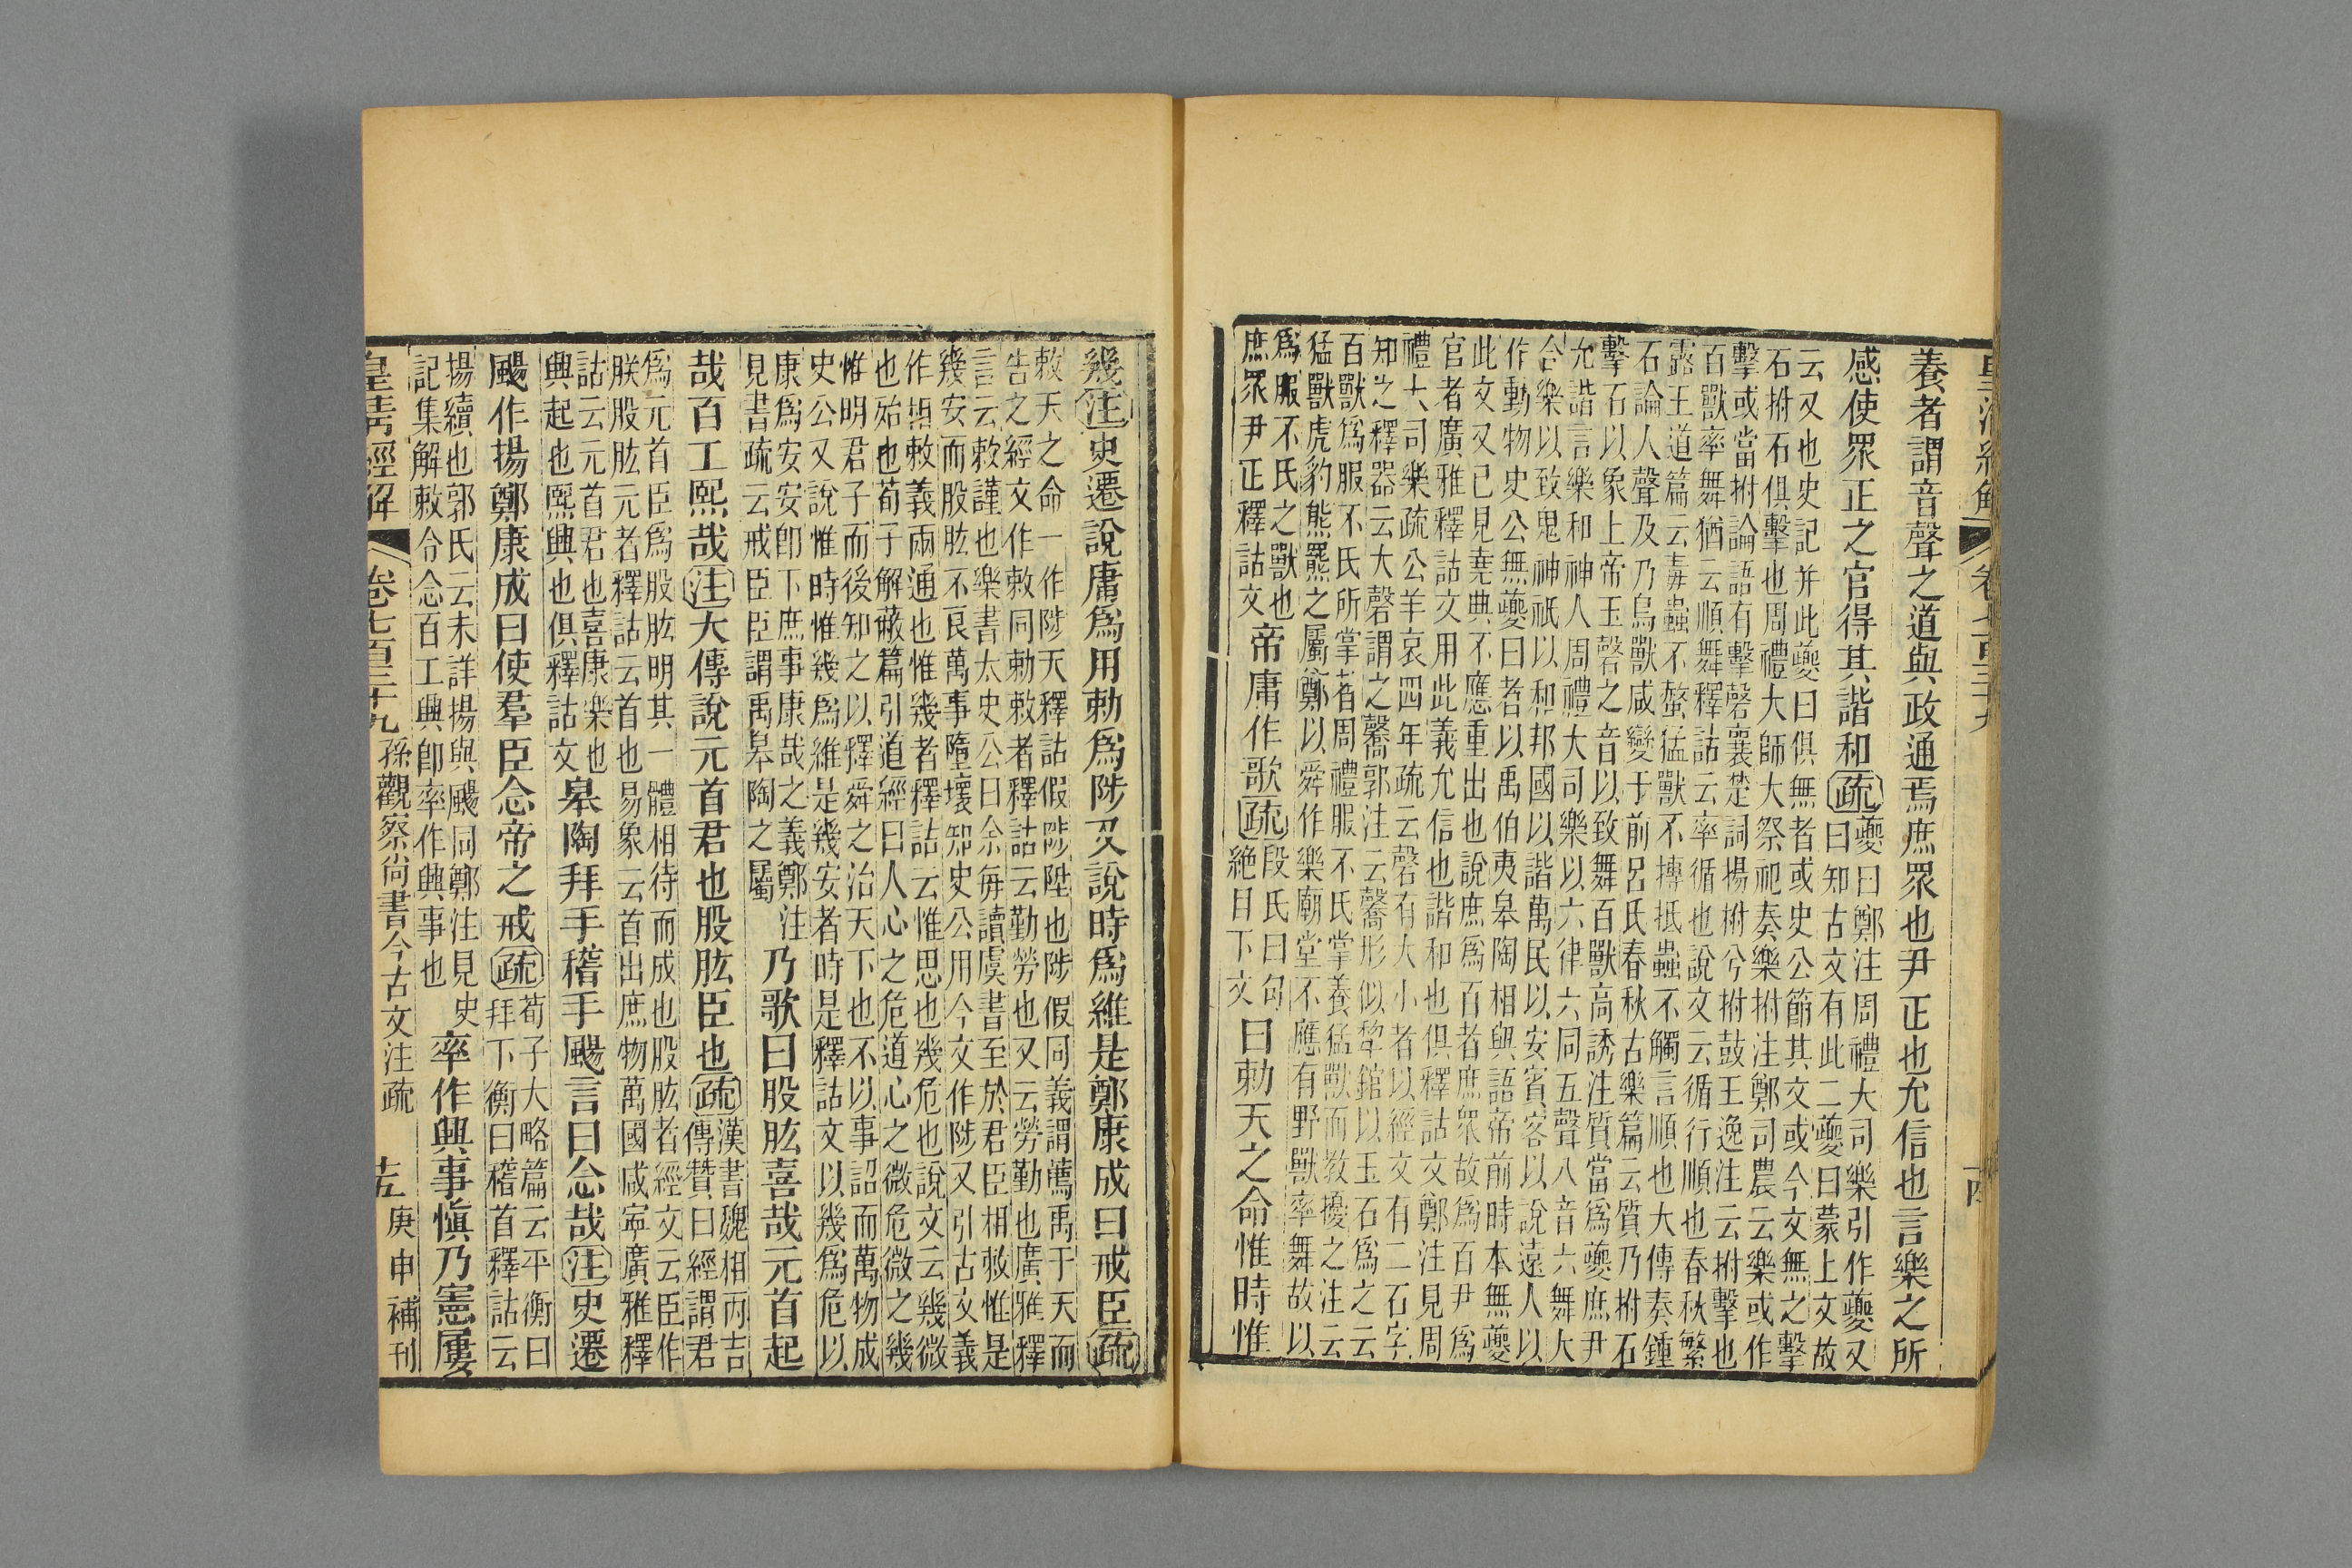 養者謂音聲之道與政通焉庶眾也尹正也允信也言樂之所
感使眾正之官得其諧和疏
夔曰鄭注周禮大司樂引作夔又
曰知古文有此二夔曰蒙上文故
云又也史記幷此夔曰俱無者或史公節其文或今文無之擊
石拊石俱擊也周禮大師大祭祀奏樂拊注鄭司農云樂或作
擊或當拊論語有擊磬襄楚詞揚拊兮拊鼓王逸注云拊擊也
百獸率舞猶云順舞釋詁云率循也說文云循行順也春秋繁
露王道篇云毒蟲不螫猛獸不搏抵蟲不觸言順也大傳奏鍾
石論人聲及乃鳥獸咸變于前呂氏春秋古樂篇云質乃拊石
擊石以象上帝玉磬之音以致舞百獸高誘注質當爲夔庶尹
允諧言樂和神人周禮大司樂以六律六同五聲八音六舞大
合樂以致鬼神祇以和邦國以諧萬民以安賓客以說遠人以
作動物史公無夔曰者以禹伯夷皋陶相與語帝前時本無夔
此文又已見堯典不應重出也說庶爲百者庶衆故爲百尹爲
官者廣雅釋詁文用此義允信也諧和也俱釋詁文鄭注見周
禮大司樂疏公羊哀四年疏云磬有大小者以經文有二石字
知之釋器云大磬謂之毊郭注云毊形似犂錧以玉石爲之云
百獸爲服不氏所掌者周禮服不氏掌養猛獸而敎擾之注云
猛獸虎豹熊羆之屬鄭以舜作樂廟堂不應有野獸率舞故以
爲服不氏之獸也
庶眾尹正釋詁文
帝庸作歌疏
段氏曰句
絶日下文
曰勅天之命惟時惟
幾注史遷說庸爲用勅爲陟又說時爲維是鄭康成曰戒臣疏
敕天之命一作陟天釋詁假陟陞也陟假同義謂薦禹于天而
告之經文作敕同勅敕者釋詁云勤勞也又云勞勤也廣雅釋
言云敕謹也樂書太史公曰余每讀虞書至於君臣相敕惟是
幾安而股肱不良萬事墮壞知史公用今文作陟又引古文義
作敕敕義兩通也惟幾者釋詁云惟思也幾危也說文云幾微
也殆也荀子解蔽篇引道經曰人心之危道心之微危微之幾
惟明君子而後知之以釋舜之治天下也不以事詔而萬物成
史公又說惟時惟幾爲維是幾安者時是釋詁文以幾爲危以
康爲安安卽下庶事康哉之義鄭注
見書疏云戒臣臣謂禹皋陶之屬
乃歌曰股肱喜哉元首起
哉百工熙哉注大傳說元首君也股肱臣也疏
漢書魏相丙吉
傳贊曰經謂君
爲元首臣爲股肱明其一體相待而成也股肱者經文云臣作
朕股肱元者釋詁云首也易象云首出庶物萬國咸寧廣雅釋
詁云元首君也喜康樂也
興起也熙興也俱釋詁文
皋陶拜手稽手颺言曰念哉注史遷
颺作揚鄭康成曰使羣臣念帝之戒疏
荀子大略篇云平衡曰
拜下衡曰稽首釋詁云
揚續也郭氏云未詳揚與颺同鄭注見史
記集解敕令念百工興卽率作興事也
率作興事愼乃憲屢
皇淸經解 卷七百三十九 孫觀察尙書今古文注疏 十五 庚申補刊